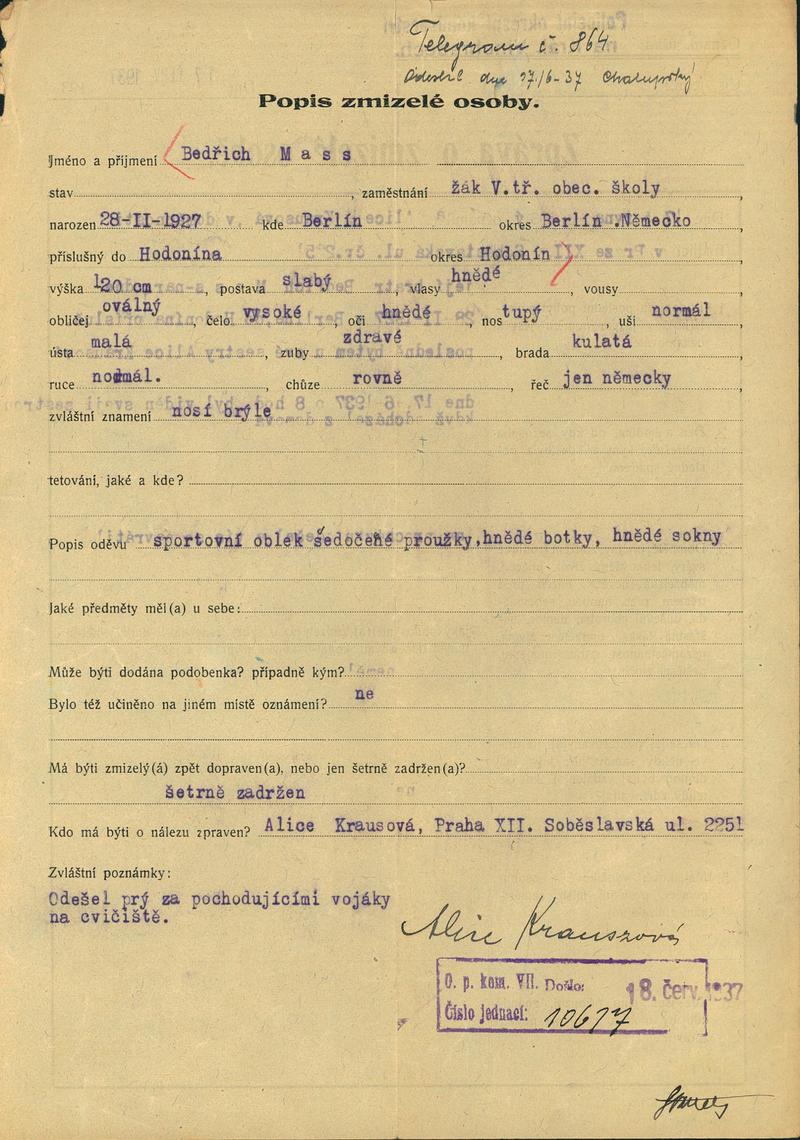 Telegram č. 864
dne 17/6-37
Popis zmizelé osoby.
Jméno a příjmení Bedřich Mass
stav , zaměstnání žák V.tř. obec. školy
narozen 28-II-1927 kde Berlín okres Berlín .Německo ,
příslušný do Hodonína okres Hodonín ,
výška 120 cm , postava slabý , vlasy hnědé , vousy ,
obličej oválný , čelo vysoké , oči hnědé , nos tupý , uši normál ,
ústa malá , zuby zdravé , brada kulatá ,
ruce normál. , chůze rovně , řeč jen německy ,
zvláštní znamení nosí brýle
tetování, jaké a kde?
Popis oděvu sportovní oblek šedočené proužky,hnědé botky, hnědé sokny
Jaké předměty měl(a) u sebe:
Může býti dodána podobenka? případně kým?
Bylo též učiněno na jiném místě oznámení? ne
Má býti zmizelý(á) zpět dopraven(a), nebo jen šetrně zadržen(a)?
šetrně zadržen
Kdo má býti o nálezu zpraven? Alice Krausová, Praha XII. Soběslavská ul. 2251
Zvláštní poznámky:
Odešel prý za pochodujícími vojáky
na cvičiště.
Alice Krauszová
O. p. kom. VII. Došlo: 18. červ. 1937
Číslo jednací: 10617